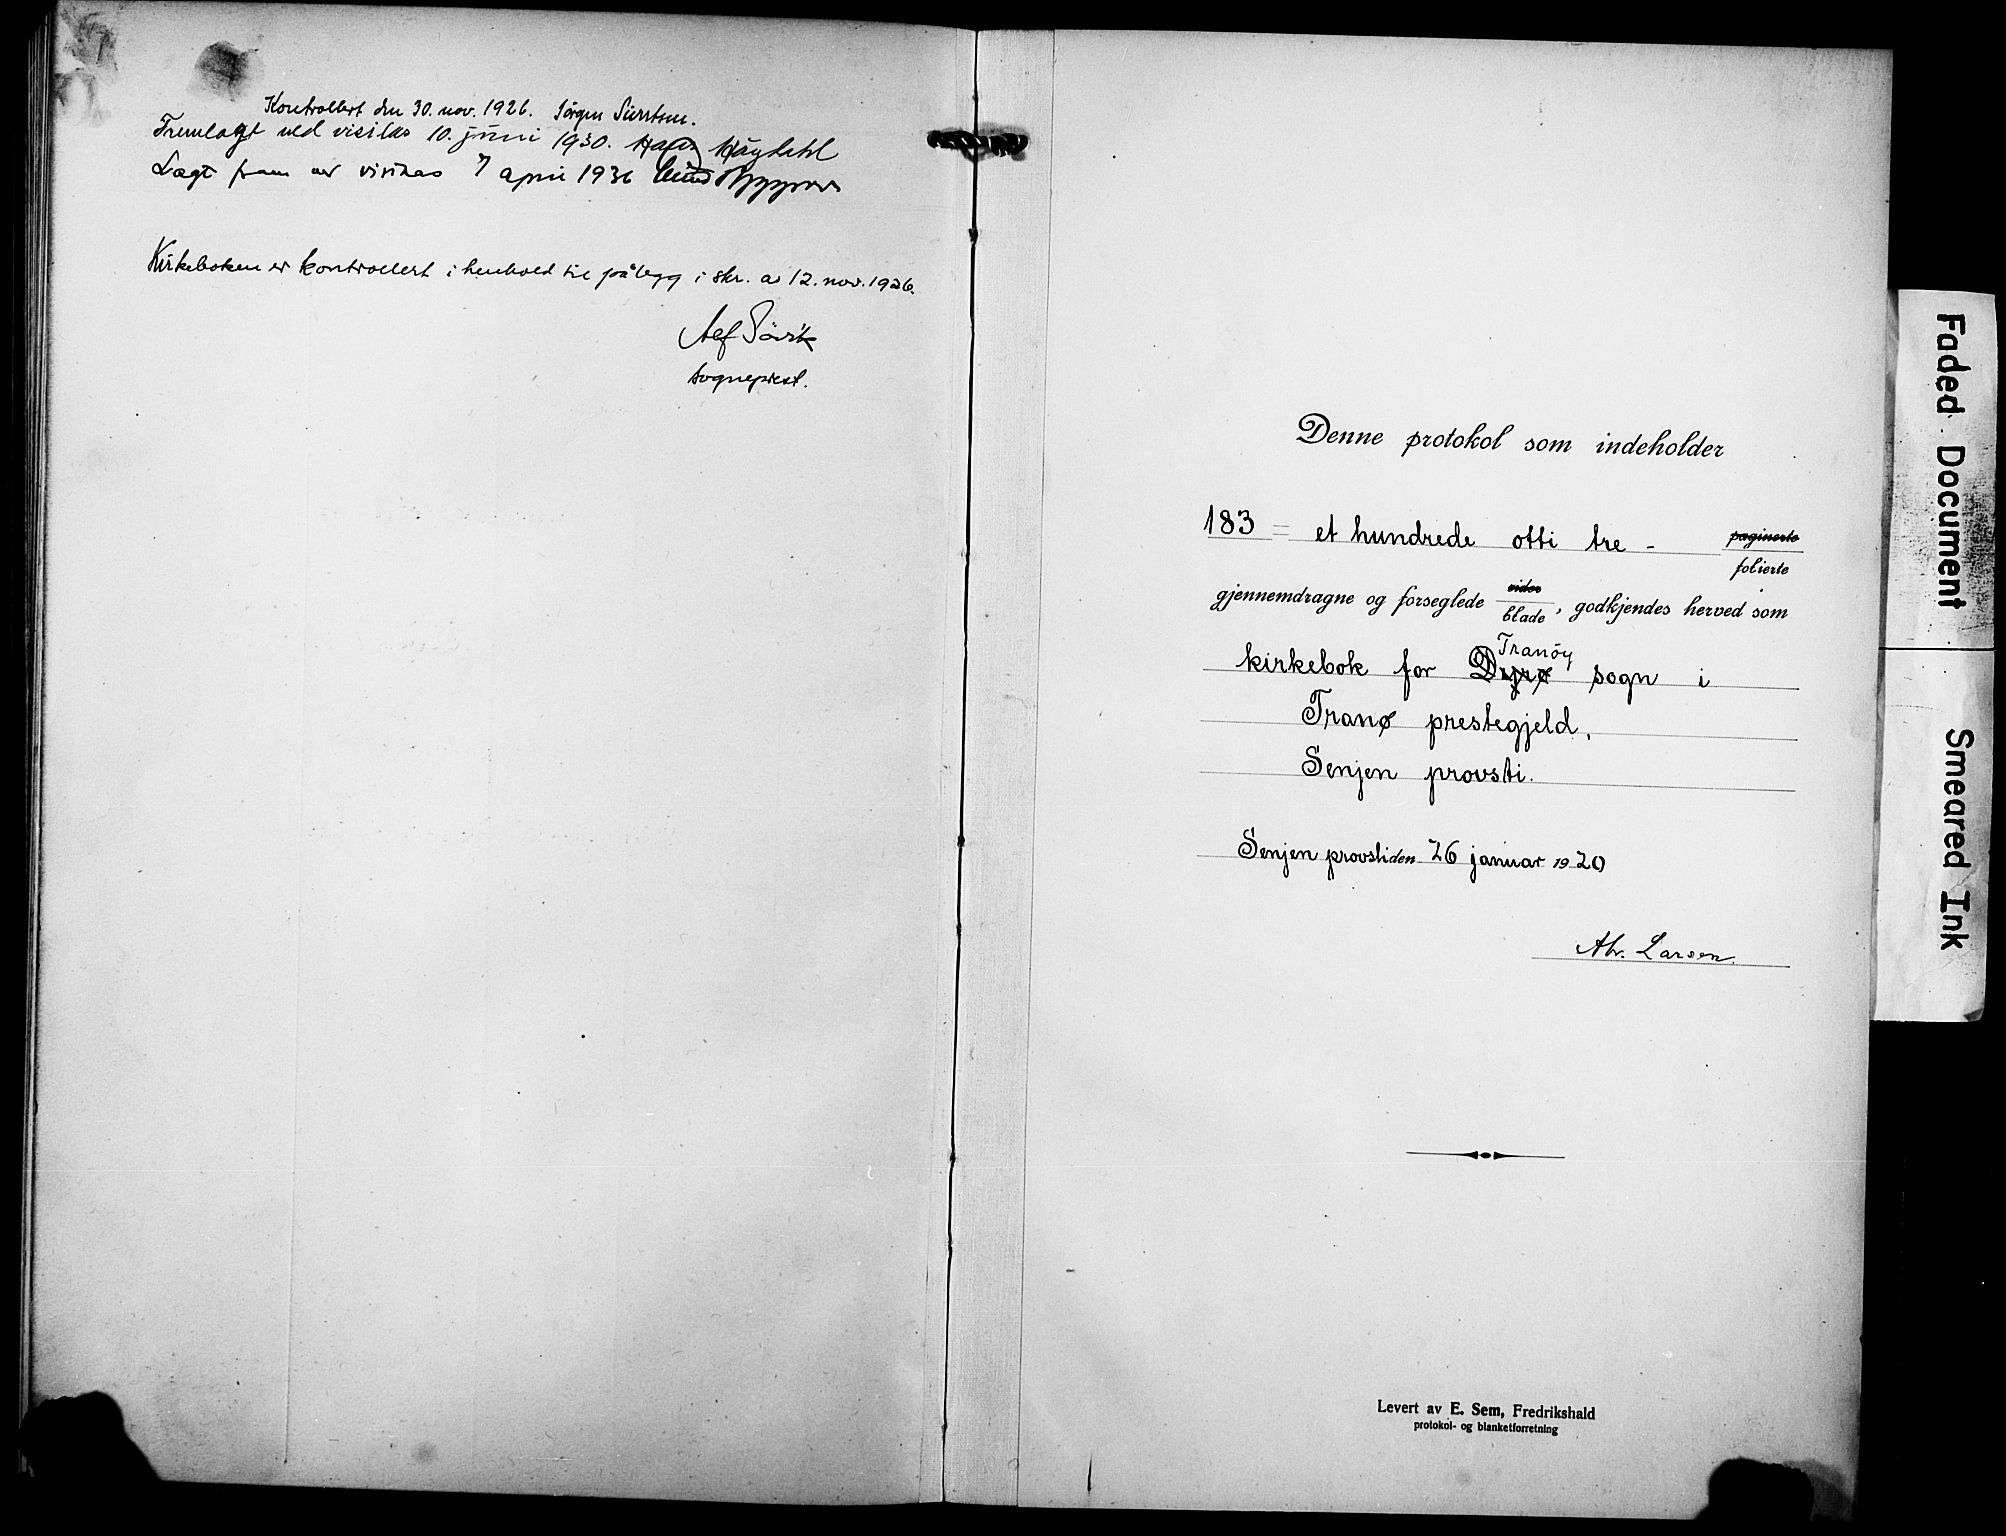 Kontrollert den 30. nov. 1926. Jörgen
Fremlagt ved visitas 10. juni 1930.
Lagt fram ved visitas 7 april 1936
Kirkeboken er kontrollert i henhold til pålegg i skr. av 12. nov. 1926.
Alf Sövik
sogneprest.
Denne protokol som indeholder
183 = et hundrede otti tre - paginerte
folierte
gjennemdragne og forseglede sider
blade, godkjendes herved som
Tranöy
kirkebok for Dyrø sogn i
Tranø prestegjeld,
Senjen provsti.
Senjen provsti den 26 januar 1920
Alr. Larsen.
Levert av E. Sem, Fredrikshald
protokol- og blanketforretning
Faded Document
Smeared Ink